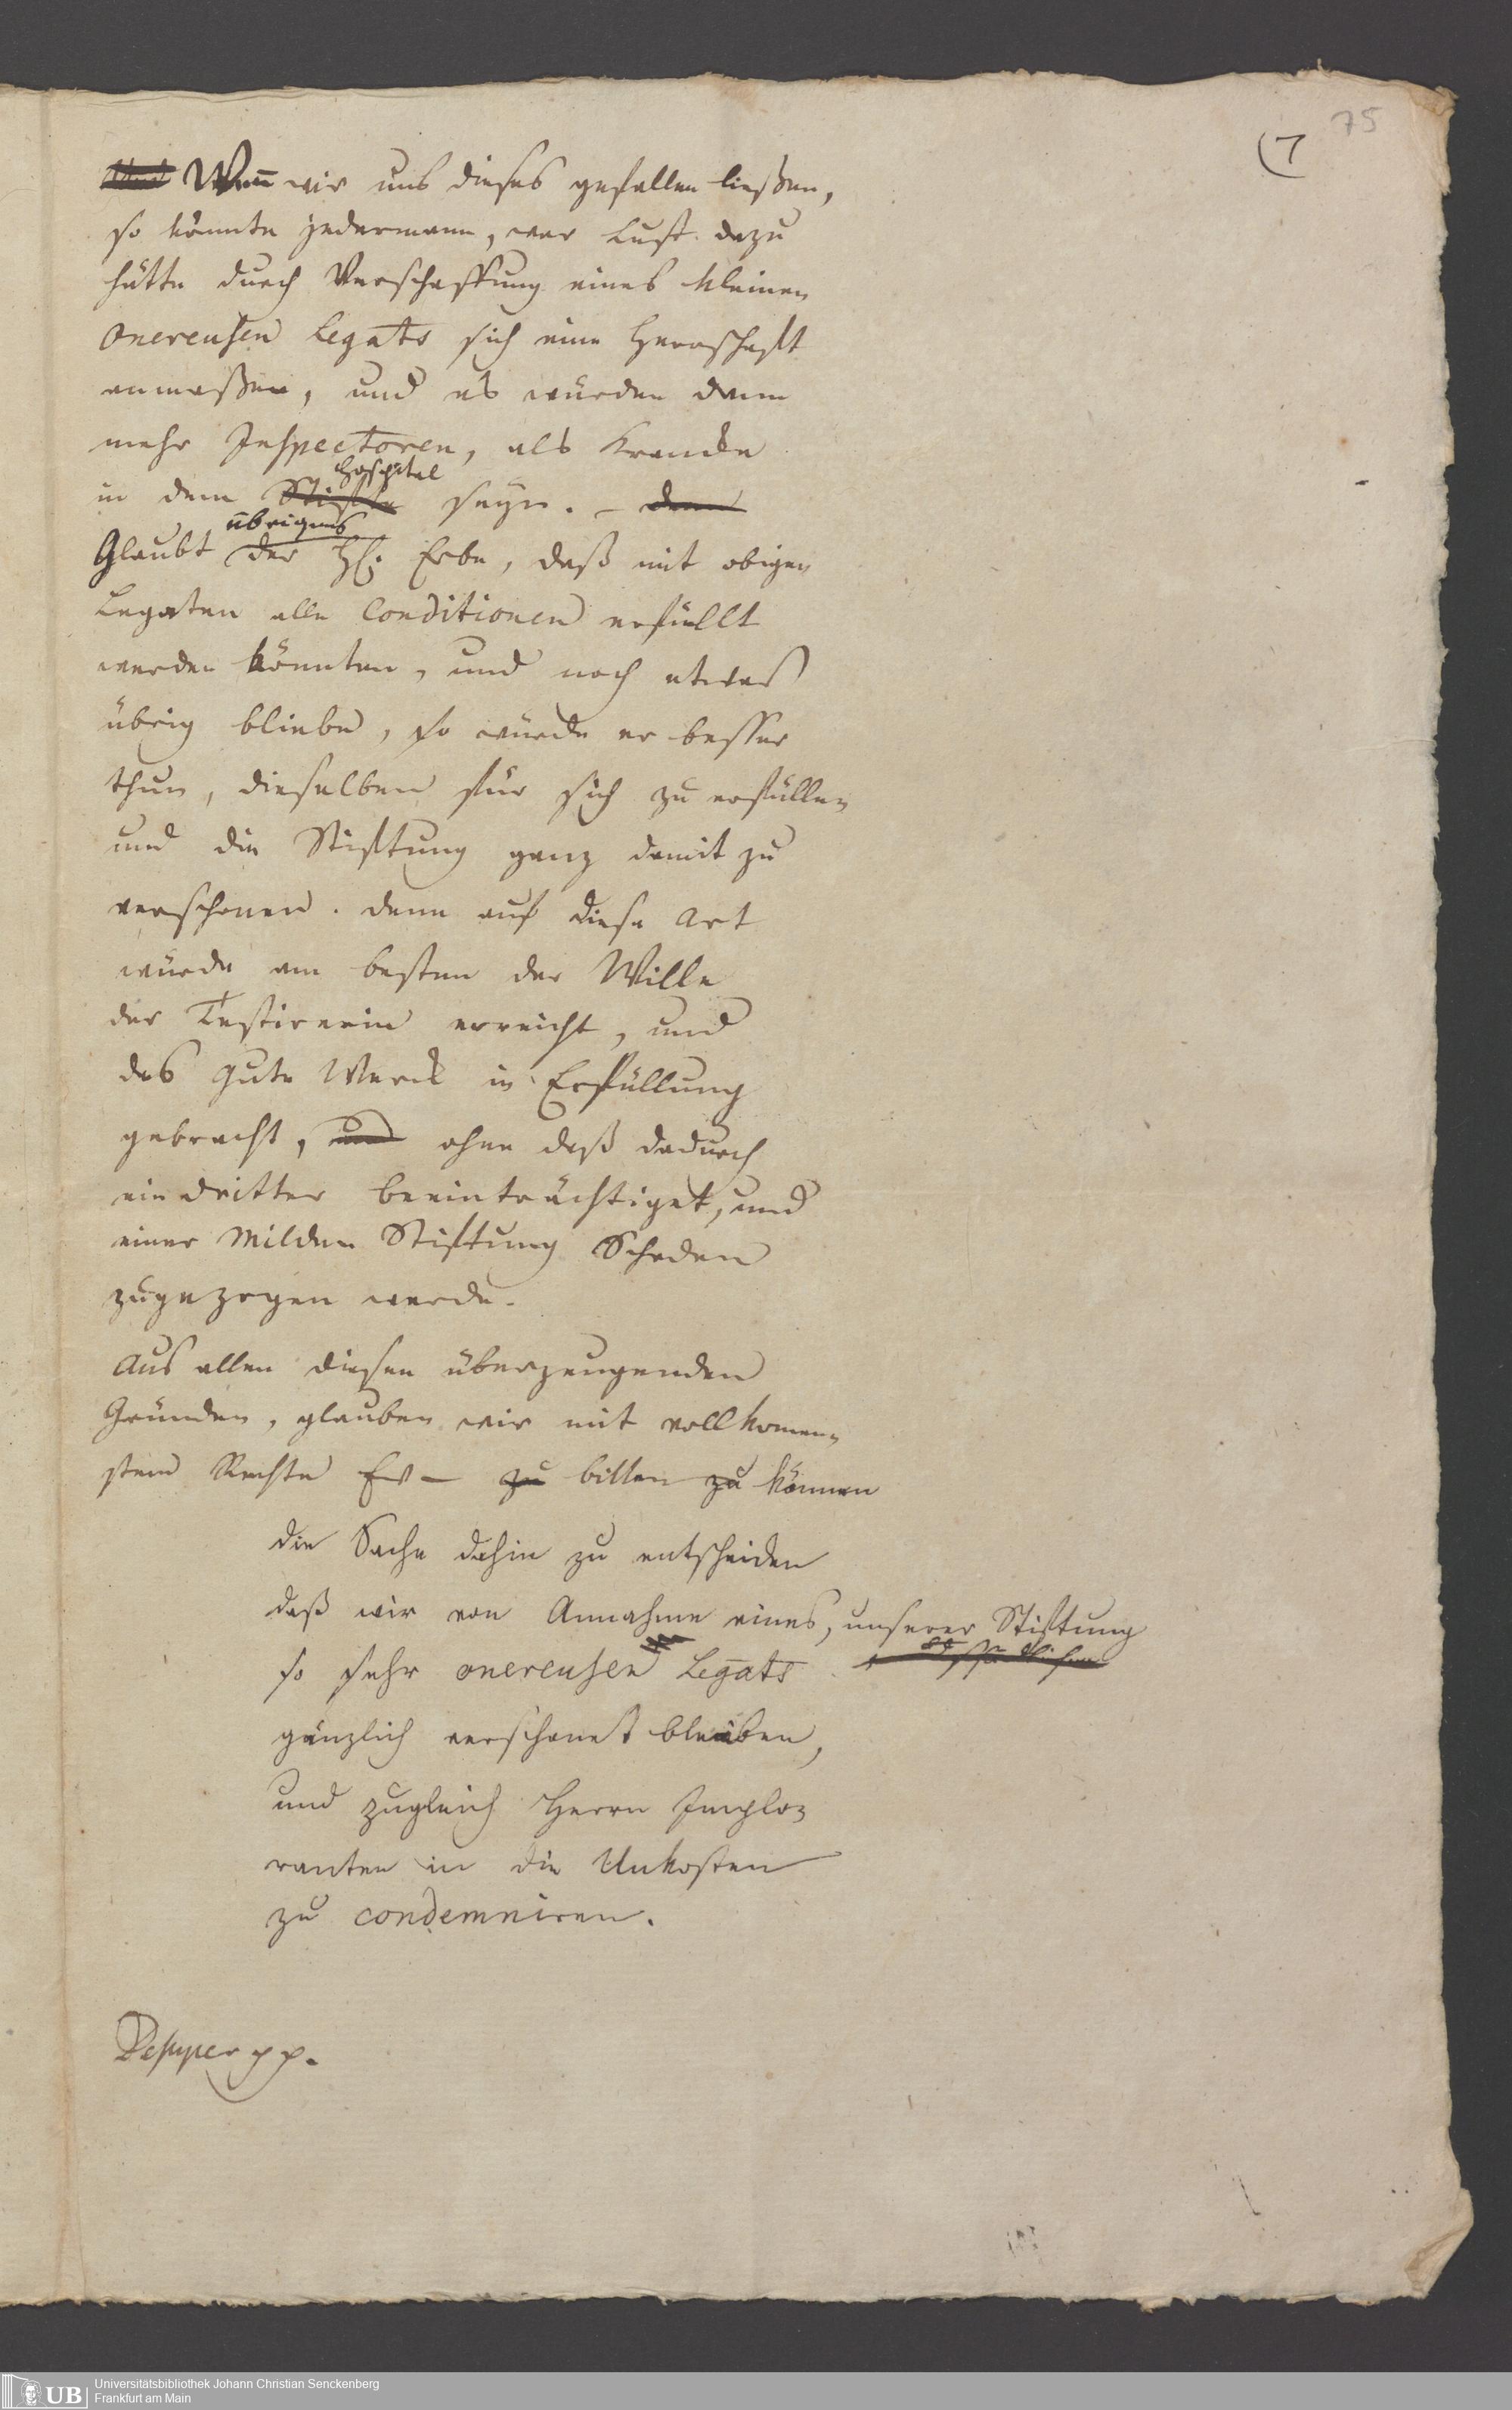 75
(7
Wenn wir uns dieses gefallen ließen,
so könnte jedermann, wer Lust dazu
hätte durch Verschaffung eines kleinen
onereusen Legats sich eine Herrschaft
anmaßen, und es würden dann
mehr Inspectoren, als Krancke
in dem Stifte Hospital seyn. – denn
Glaubt übrigens der H. Erbe, daß mit obigen
Legaten alle Conditionen erfüllt
werden könnten, und noch etwas
übrig bliebe, so würde er besser
thun, dieselben für sich zu erfüllen
und die Stiftung ganz damit zu
verschonen. denn auf diese Art
würde am besten der Wille
der Testirerin erreicht, und
das gute Werck in Erfüllung
gebracht, und ohne daß dadurch
ein dritter beeinträchtiget, und
einer milden Stiftung Schaden
zugezogen werde.
Aus allen diesen überzeugenden
Gründen, glauben wir mit vollkomen-
stem Rechte Ew – zu bitten zu können
die Sache dahin zu entscheiden
daß wir von Annahme eines, unserer Stiftung
so sehr onereusen Legats
gänzlich verschonet bleiben,
und zugleich Herrn Implo-
ranten in die Unkosten
zu condemniren.
pp.
UB
Universitätsbibliothek Johann Christian Senckenberg
Frankfurt am Main